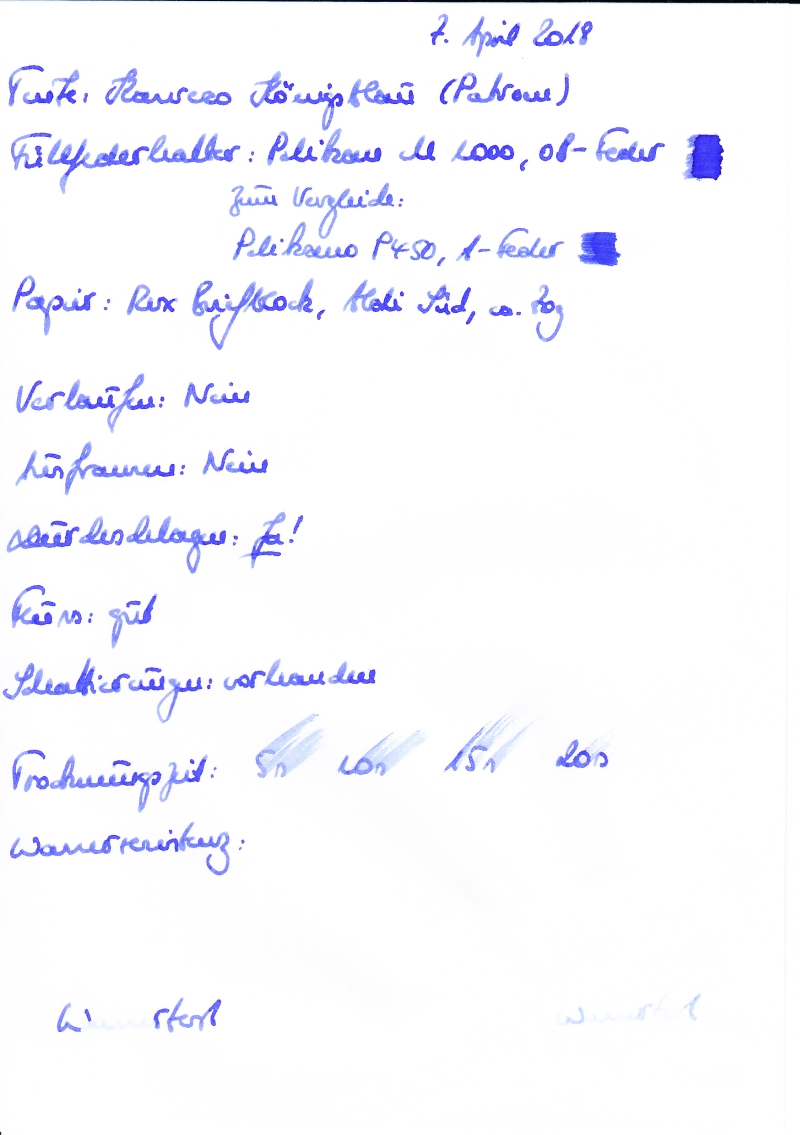 7. April 2018
Tinte: Kaweco Königsblau (Patrone)
Füllfederhalter: Pelikan M 1000, OB-Feder
zum Vergleich:
Pelikano P450, A-Feder
Papier: Rex Briefblock, Aldi Süd, ca. 70g
Verlaufen: Nein
Ausfransen: Nein
Durchschlagen: Ja!
Fluss: gut
Schattierungen: vorhanden
Trocknungszeit: 5s 10s 15s 20s
Wasserresistenz:
Wassertest Wassertest